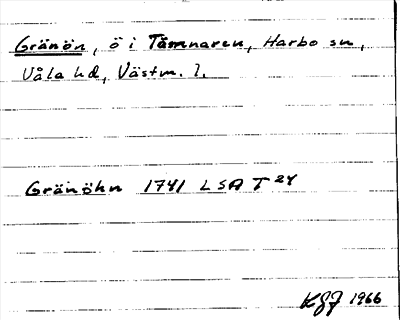 Gränön, ö i Tämnaren, Harbo sn,
Våla hd, Västm. l.
Gränöhn 1741 LSA T 24
KGJ 1966